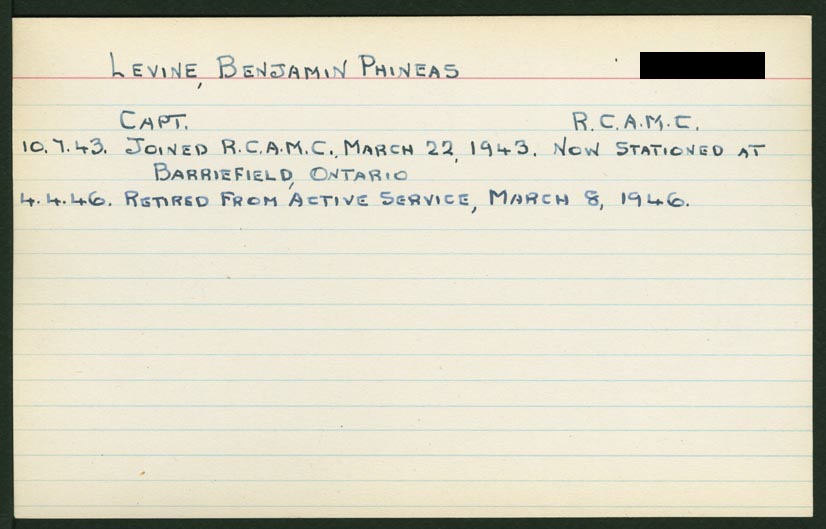 LEVINE, BENJAMIN PHINEAS
CAPT. R.C.A.M.C.
10.7.43. JOINED R.C.A.M.C., MARCH 22, 1943. NOW STATIONED AT
BARRIEFIELD, ONTARIO
4.4.46. RETIRED FROM ACTIVE SERVICE, MARCH 8, 1946.